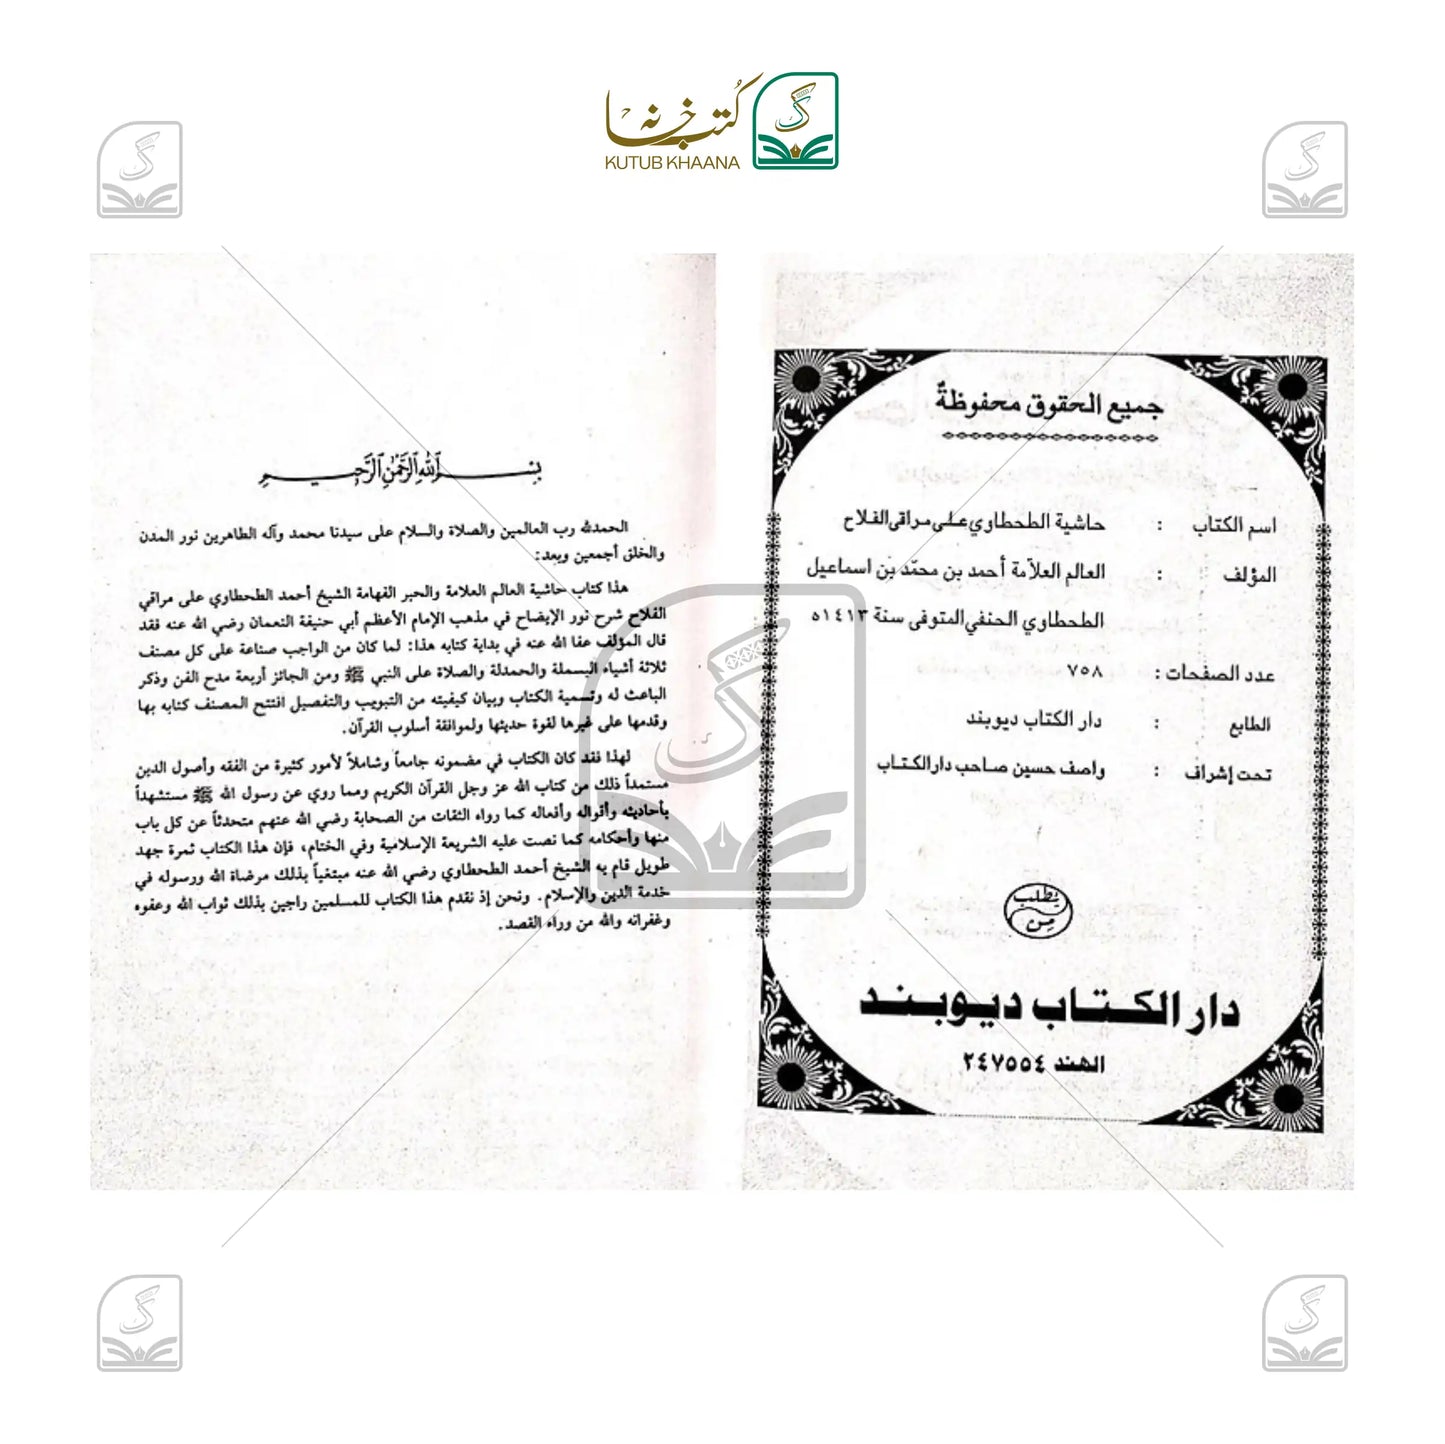 كتب خانہ
KUTUB KHAANA
جميع الحقوق محفوظةٌ
اسم الكتاب : حاشية الطحطاوي على مراقي الفلاح
المؤلف : العالم العلاّمة أحمد بن محمّد بن اسماعيل
الطحطاوي الحنفي المتوفى سنة ١٤١٣ه
عدد الصفحات : ٧٥٨
الطابع : دار الكتاب ديوبند
تحت إشراف : واصف حسين صاحب دار الكتاب
يطلب
من
دار الكتاب ديوبند
الهند ٢٤٧٥٥٤
بسم الله الرحمن الرحيم
الحمدلله رب العالمين والصلاة والسلام على سيدنا محمد وآله الطاهرين نور المدن
والخلق أجمعين وبعد:
هذا كتاب حاشية العالم العلامة والحبر الفهامة الشيخ أحمد الطحطاوي على مراقي
الفلاح شرح نور الإيضاح في مذهب الإمام الأعظم أبي حنيفة النعمان رضي الله عنه فقد
قال المؤلف عفا الله عنه في بداية كتابه هذا: لما كان من الواجب صناعة على كل مصنف
ثلاثة أشياء البسملة والحمدلة والصلاة على النبي ﷺ ومن الجائز أربعة مدح الفن وذكر
الباعث له وتسمية الكتاب وبيان كيفيته من التبويب والتفصيل افتتح المصنف كتابه بها
وقدمها على غيرها لقوة حديثها ولموافقة أسلوب القرآن.
لهذا فقد كان الكتاب في مضمونه جامعاً وشاملاً لأمور كثيرة من الفقه وأصول الدين
مستمداً ذلك من كتاب الله عز وجل القرآن الكريم ومما روي عن رسول الله ﷺ مستشهداً
بأحاديثه وأقواله وأفعاله كما رواه الثقات من الصحابة رضي الله عنهم متحدثاً عن كل باب
منها وأحكامه كما نصت عليه الشريعة الإسلامية وفي الختام، فإن هذا الكتاب ثمرة جهد
طويل قام به الشيخ أحمد الطحطاوي رضي الله عنه مبتغياً بذلك مرضاة الله ورسوله في
خدمة الدين والإسلام. ونحن إذ نقدم هذا الكتاب للمسلمين راجين بذلك ثواب الله وعفوه
وغفرانه والله من وراء القصد.